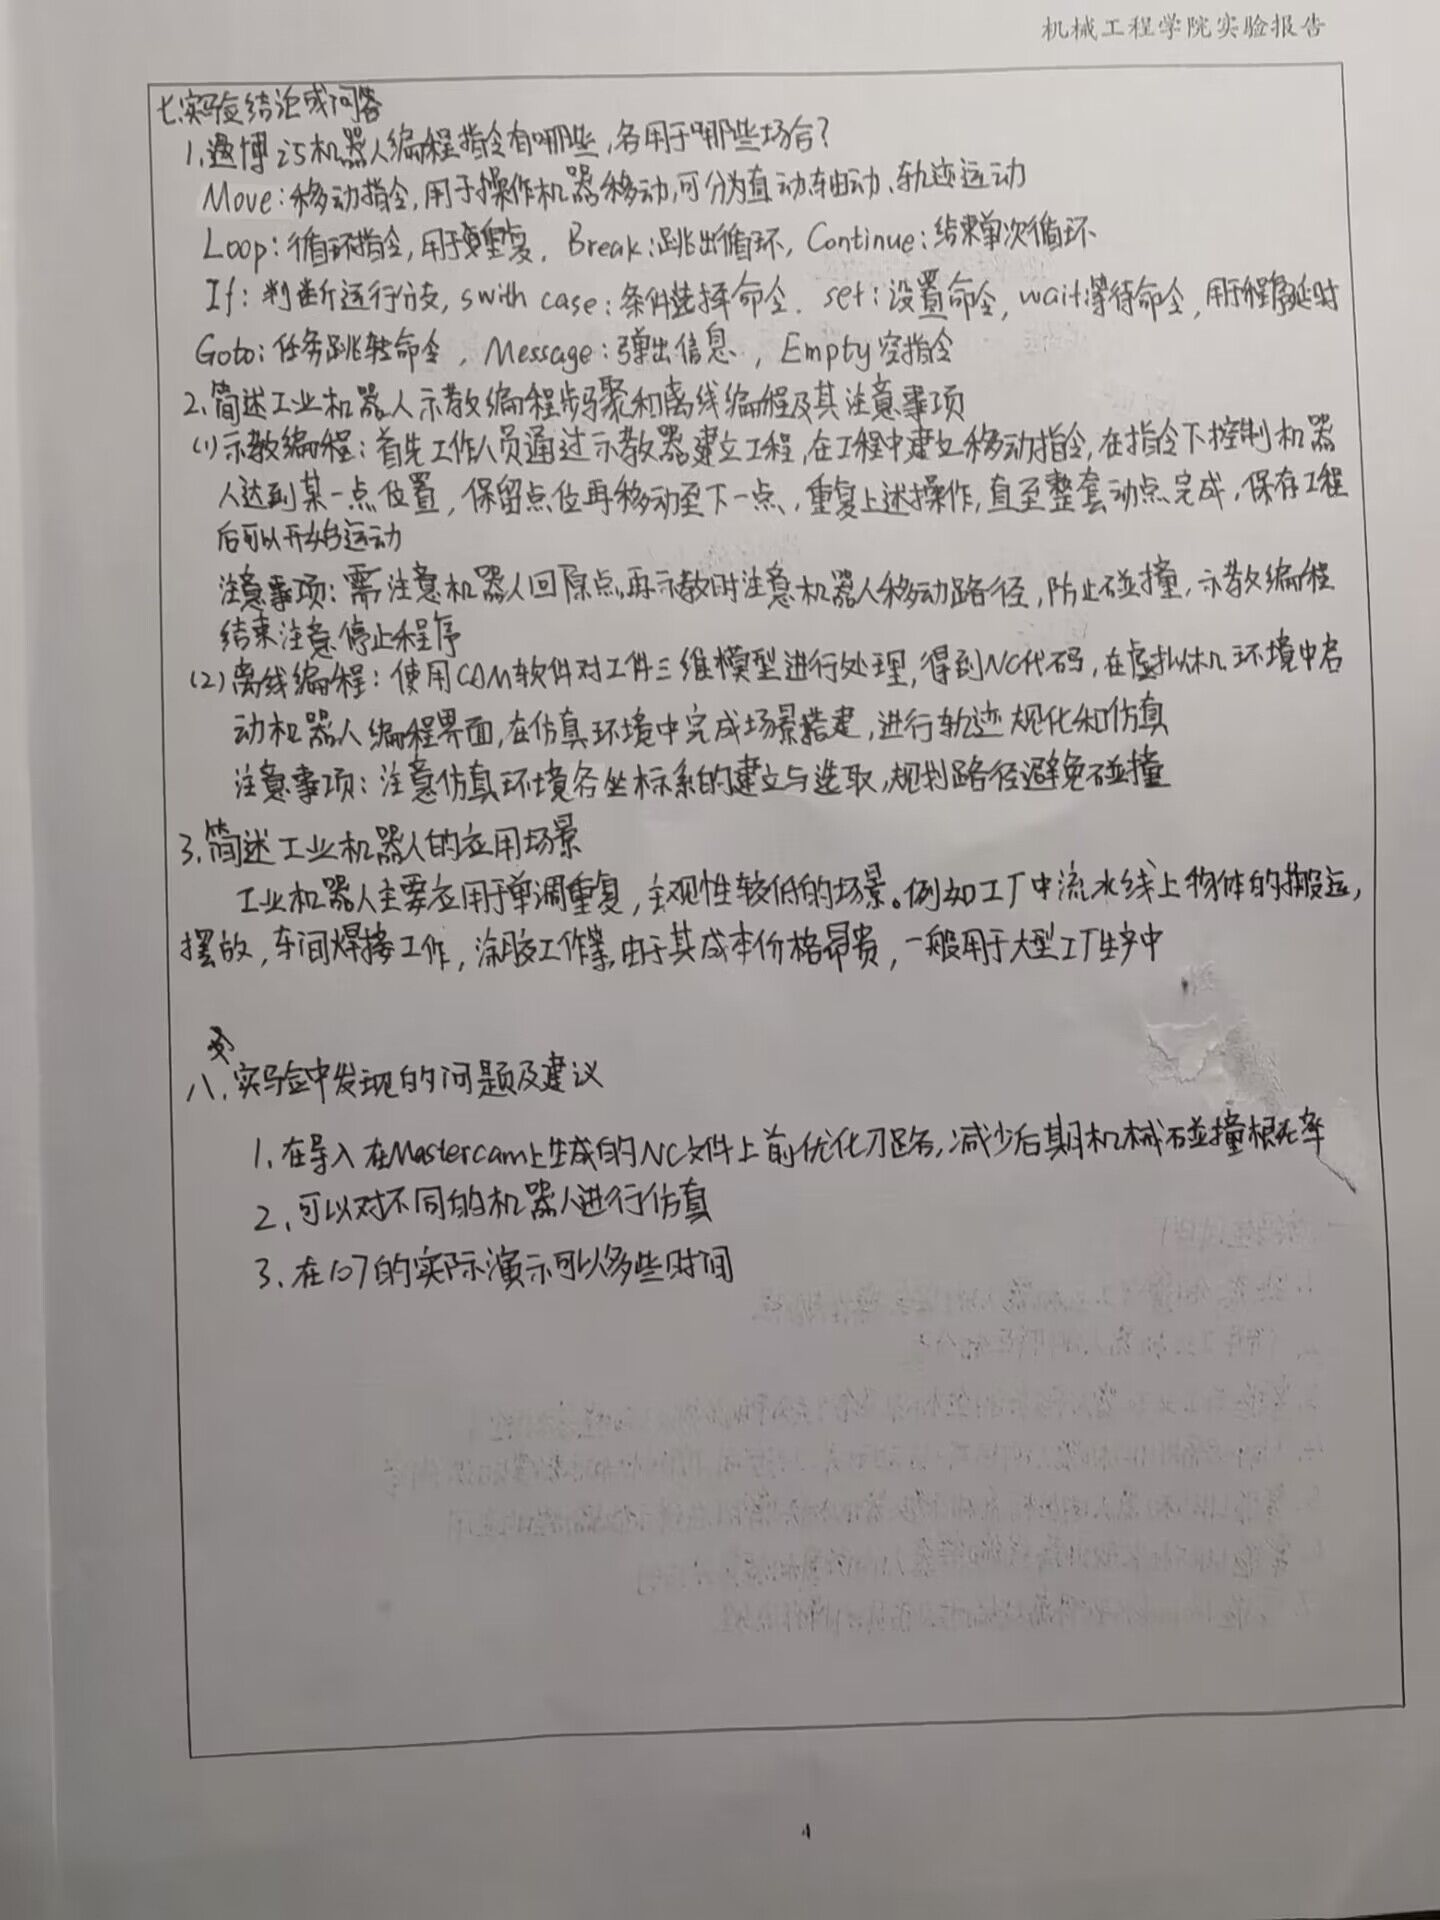 机械工程学院实验报告
七.实验结论或问答
1.遨博i5机器人编程指令有哪些,各用于哪些场合?
Move:移动指令,用于操作机器移动,可分为直动、轴动、轨迹运动
Loop:循环指令,用于重复, Break:跳出循环, Continue:结束单次循环
If:判断运行分支, swith case:条件选择命令. set:设置命令, wait:等待命令,用于程序延时
Goto:任务跳转命令, Message:弹出信息, Empty空指令
2.简述工业机器人示教编程步骤和离线编程及其注意事项
(1)示教编程:首先工作人员通过示教器建立工程,在工程中建立移动指令,在指令下控制机器
人达到某一点位置,保留点位再移动至下一点,重复上述操作,直至整套动点完成,保存工程
后可以开始运动
注意事项:需注意机器人回原点,再示教时注意机器人移动路径,防止碰撞,示教编程
结束注意停止程序
(2)离线编程:使用CAM软件对工件三维模型进行处理,得到NC代码,在虚拟机环境中启
动机器人编程界面,在仿真环境中完成场景搭建,进行轨迹规化和仿真
注意事项:注意仿真环境各坐标系的建立与选取,规划路径避免碰撞
3.简述工业机器人的应用场景
工业机器人主要应用于单调重复,主观性较低的场景。例如工厂中流水线上物体的搬运,
摆放,车间焊接工作,涂胶工作等,由于其成本价格昂贵,一般用于大型工厂生产中
八.实验中发现的问题及建议
1.在导入在Mastercam上生成的NC文件上前优化刀路,减少后期机械碰撞概率
2.可以对不同的机器人进行仿真
3.在107的实际演示可以多些时间